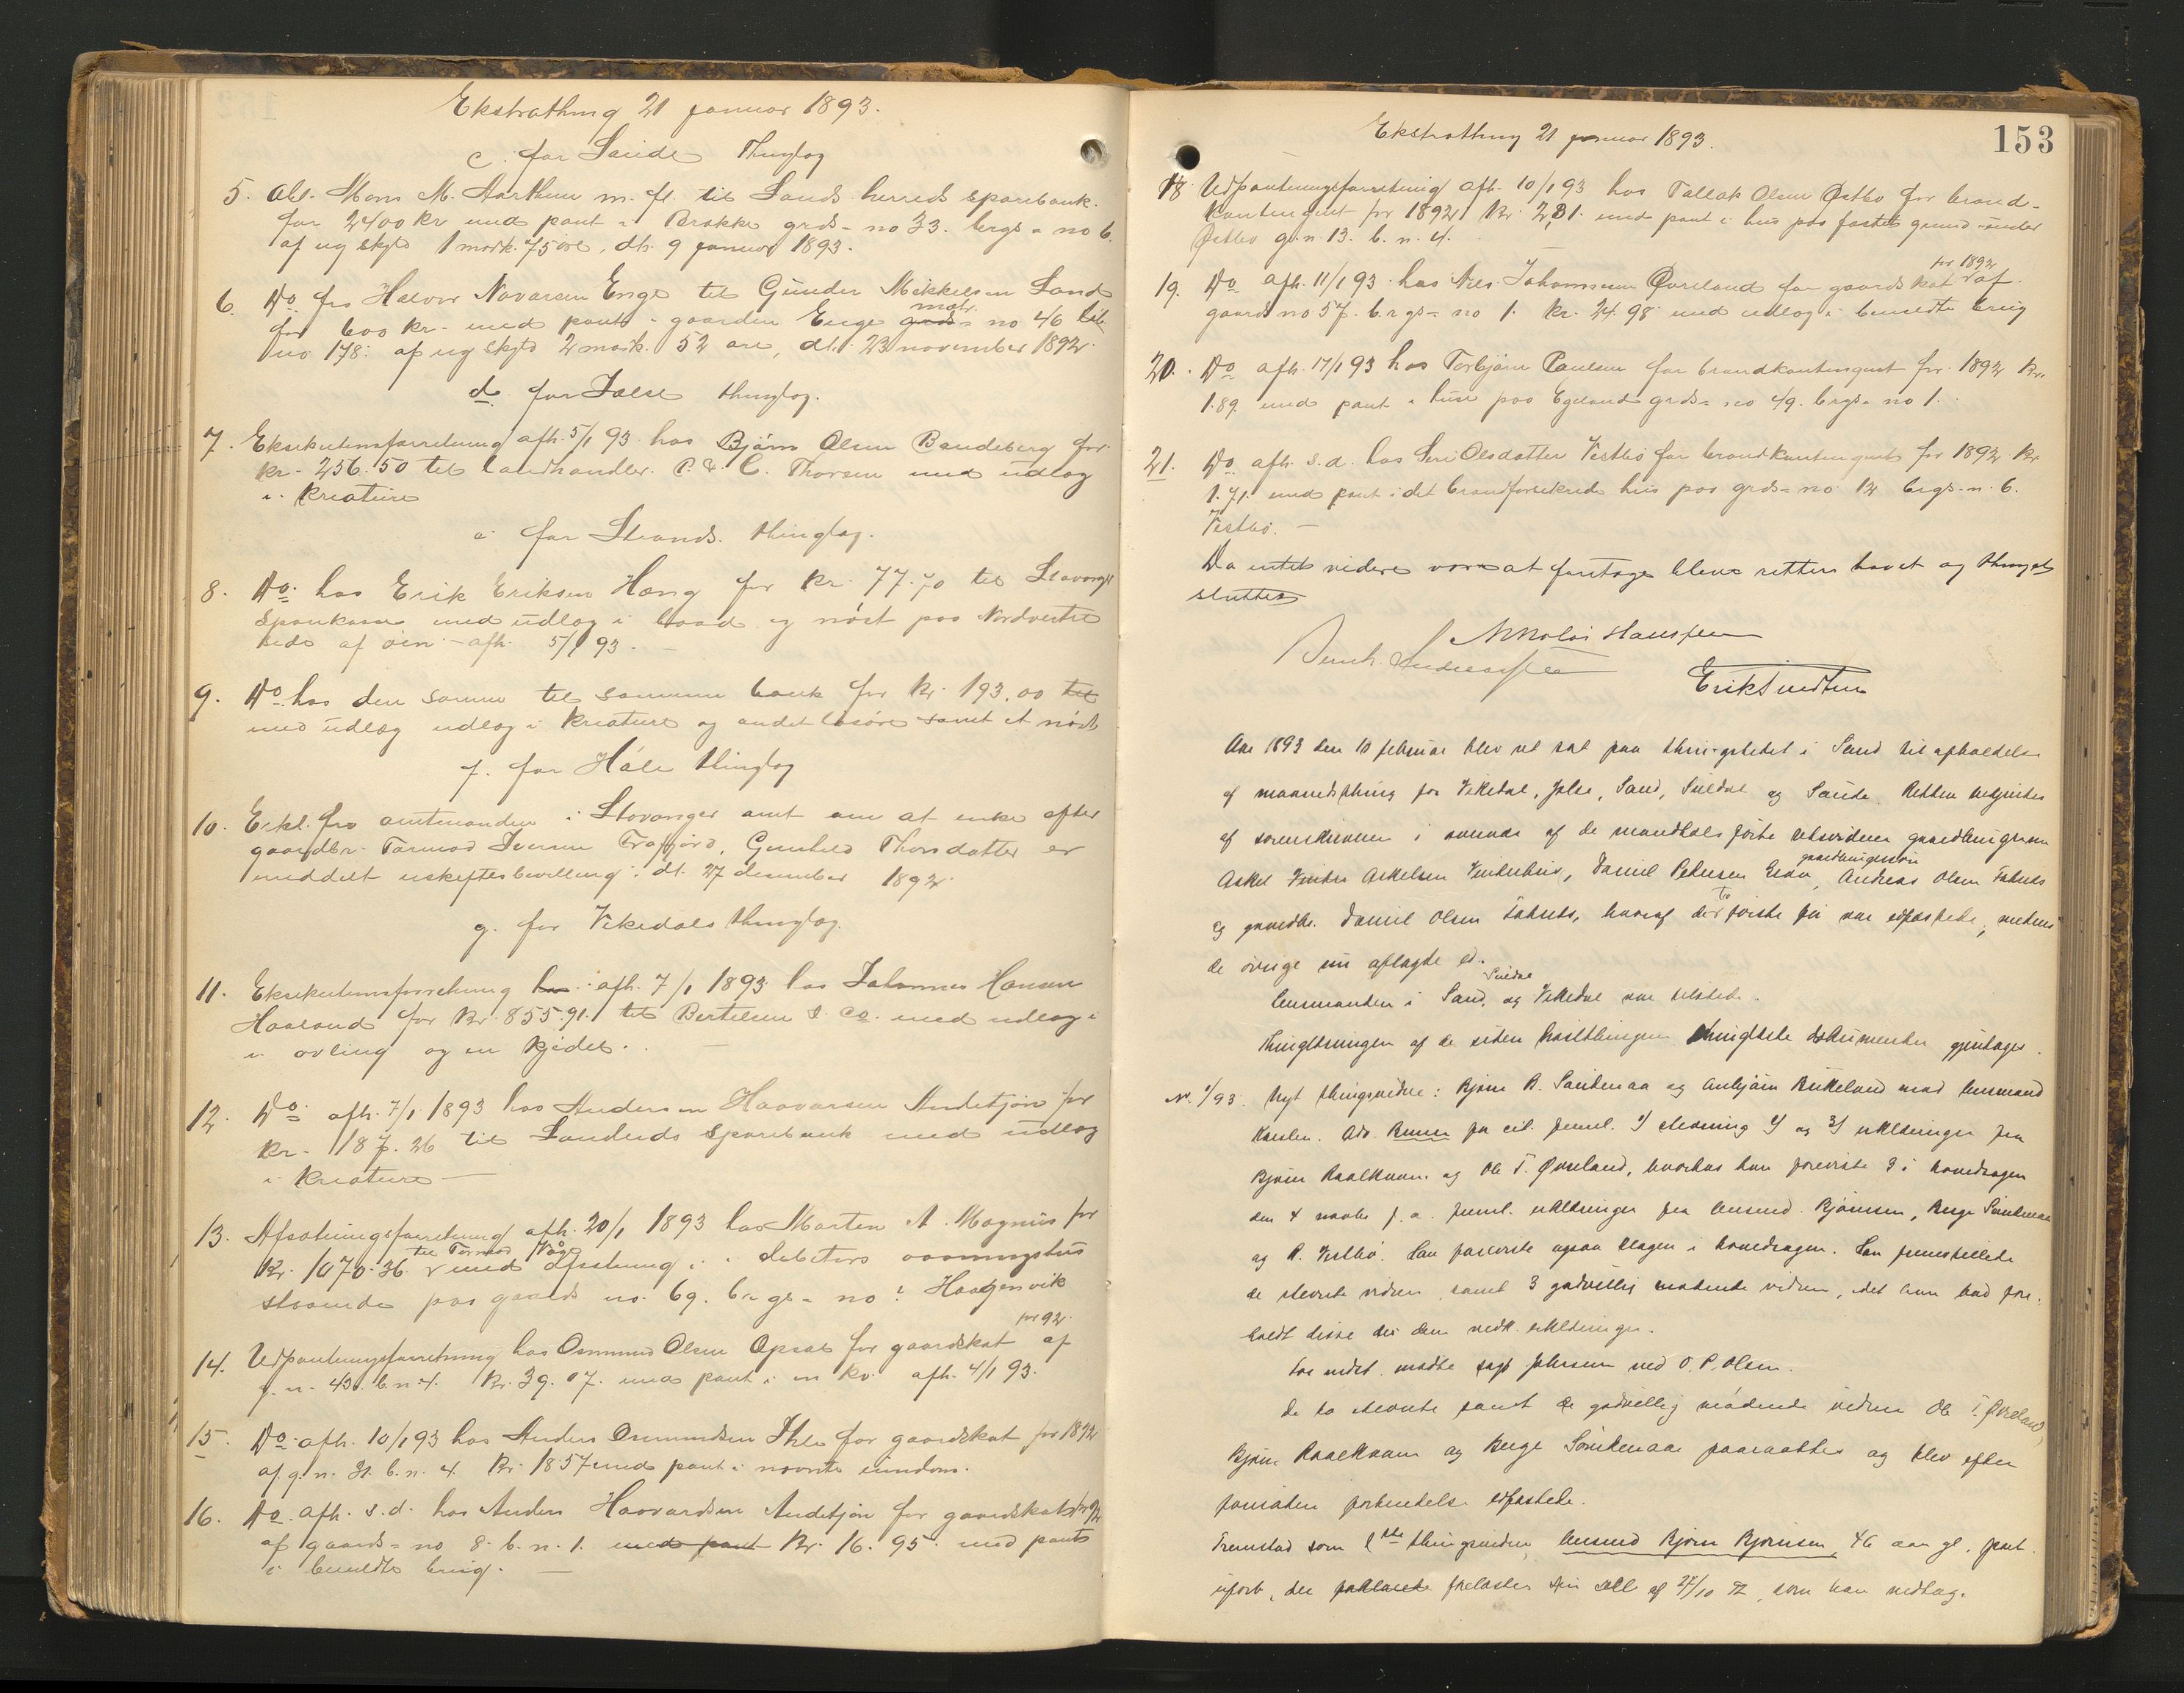 Ekstrathing 21 januar 1893.
c. for Saude Thinglag
5. Obl. Mons M. Aarthun m. fl. til Sands herreds sparebank.
for 2400 kr med pant i Brakke grds-no 33. brgs-no 6.
af ny skyld 1 mark. 75 øre, dt. 9 januar 1893.
6. Do fra Halvor Navarsen Enge til Gunder Mikkelsen Sand
for 600 kr. med pant i gaarden Enge grds- matr. no 46 lit.
no 178. af ny skyld 2 mark. 52 øre, dt. 23 november 1892.
d. for Jælse thinglag.
7. Eksekutionsforretning afh. 5/1 93 hos Bjørn Olsen Bandeberg for
kr. 256.50 til landhandler P. & C. Thorsen med udlæg
i kreature
e. for Strands. thinglag.
8. Do. hos Erik Eriksen Hæng for kr. 77.70 til Stavanger
Sparekasse med udlæg i baad og nøst paa Nordvestre
side af øen - afh. 5/1 93. -
9. Do hos den samme til samme bank for kr. 193.00 til
med udlæg udlæg i kreature og andet løsøre samt et nøst
f. for Hále thinglag
10. Erkl. fra amtmanden i Stavanger amt om at enke efter
gaardbr. Tormod Iversen Frafjord, Gunhild Thorsdatter er
meddelt uskiftesbevilling: dt. 27 desember 1892.
g. for Vikedals thinglag.
11. Eksekutionsforretning hos afh. 7/1 1893 hos Johannes Hansen
Haaland for Kr. 855.91. til Bertelsen & Co. med udlæg i
i avling og en kjedel. -
12. Do afh. 7/1 1893 hos Anders Haavarsen Andstjøn for
kr. 187.26 til Sandeids Sparebank med udlæg
i kreature -
13. Afsætningsforretning afh. 20/1 1893 hos Morten A. Magnus for
kr. 1070.36 til Tormod Våge med Afsætning i debitors vaaningshus
staaende paa gaards no. 69. brgs-no 2 Haagenvik
14. Udpantningsforretning hos Osmund Olsen Opsal for gaardskat for 92. af
g.n. 43. b.n. 4. Kr. 39.07. med pant i en ko afh. 4/1 93.
15. Do. afh. 10/1 93 hos Anders Osmundsen Ihle for gaardskat for 1892
af g.n. 31. b.n. 4. Kr. 18.57 med pant i nævnte eiendom.
16. Do. afh. s.d. hos Anders Haavardsen Andstjøn for gaardskat for 92
af gaards-no 8. b.n. 1. med pant Kr. 16.95. med pant
i bemeldte brug. -
Ekstrathing 21 januar 1893.
153
18. Udpantningsforretning afh. 10/1 93 hos Tallak Olsen Østbø for brand-
kontingent for 1892 Kr. 2,31. med pant i hus paa fæstet grund under
Østbø g.n. 13. b.n. 4.
19. Do afh. 11/1 93 hos Nils Johannesen Øvreland for gaardskat for 1892 af
gaards no 57. brgs-no 1. Kr. 24.98 med udlæg i bemeldte brug
20. Do afh. 17/1 93 hos Torbjørn Paulsen for brandkontingent for 1892 kr.
1.89 med pant i huse paa Egeland grds-no 49. brgs-no 1.
21. Do afh. s.d. hos Siri Olsdatter Vestbø for brandkontingent for 1892 kr
1.71. med pant i det brandforsikrede hus paa grds-no 12 brgs-n. 6.
Vestbø. -
Da intet videre var at foretage blev retten hævet og thinget
sluttet
Nikolai Hansen
Bernh. Andersen
Erik Knudsen
Aar 1893 den 10 februar blev ret sat paa thingstedet i Sand til afholdelse
af maanedsthing for Vikedal, Jelse, Sand, Suldal og Saude. Retten betjentes
af sorenskriveren i overvær af de mandtalsførte retsvidner gaardbrugerne
Askel Vindre Askelsen Vinterhus, Daniel Pedersen Eide, gaardbrugersøn Andreas Olsen Foknes
og gaardbr. Daniel Olsen Foknes, hvoraf de to første før var edfæstede, medens
de øvrige nu aflagde ed.
Lensmanden i Sand, Suldal og Vikedal var tilstede.
Thinglæsningen af de siden høstthingene thinglæste dokumenter gjentages.
Nr. 1/93. Nyt thingsvidne: Bjørn B. Sandenaa og Anbjørn Birkeland mod lensmand
Kaarhus. Adv. Bunen for cit. freml. 1) stevning 2) og 3) erklæringer fra
Bjørn Raalkvam og Ole T. Øvreland, hvorhos han foreviste 9 i hovedsagen
den 4 novbr f. a. freml. erklæringer fra Lensmd. Bjørnsen, Berge Sandenaa
og R. Vestbø. Han foreviste ogsaa klagen i hovedsagen. Han fremstillede
de stevnte vidner samt 3 godvillig mødende vidner, idet han bad fore-
holdt disse des den vedk. erklæringer.
For indst. mødte sagf. Johnsen ved O. P. Olsen.
De to stevnte samt de godvillig mødende vidner Ole T. Øvreland,
Bjørn Raalkvam og Berge Sandenaa paaraabtes og blev efter
foregaaende formaning edfæstede.
Fremstod som 1ste thingsvidne Lensmd Bjørn Bjørnsen, 46 aar gl. part.
uforb., der forklarede forelæstes sin erkl. af 24/10 92, som han vedtog.